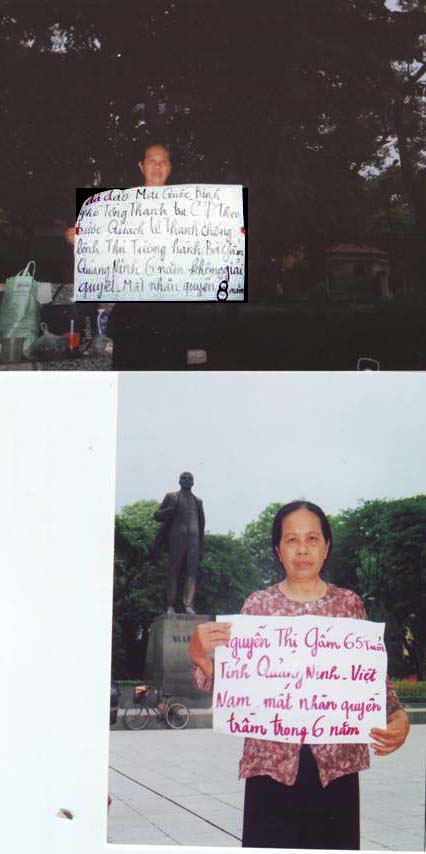 đả đảo Mưu Quốc Bình
phó Tổng Thanh tra C P Theo
bước Quách Lê Thanh chống
lệnh Thủ Tướng hành Bà Gấm
Quảng Ninh 6 năm không giải
quyết. Mất nhân quyền 8 năm
Nguyễn Thị Gấm 65 Tuổi
Tỉnh Quảng Ninh - Việt
Nam - mất nhân quyền
trầm trọng 6 năm